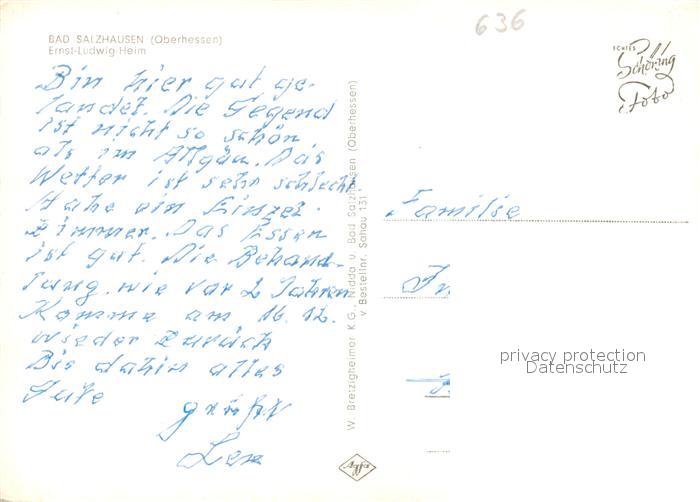 636
BAD SALZHAUSEN (Oberhessen)
Ernst-Ludwig-Heim
ECHTES
Schöning
Foto
Bin hier gut ge-
landet. Die Gegend
ist nicht so schön
als im Allgäu. Das
Wetter ist sehr schlecht
Habe ein Einzel-
zimmer. Das Essen
ist gut. Die Behand-
lung wie vor 2 Jahren
Komme am 16.12.
wieder zurück
Bis dahin alles
Gute
grüßt
W. Bretzigheimer K.G., Nidda u. Bad Salzhausen (Oberhessen)
v Bestellnr. Sahau 131
Familie
privacy protection
Datenschutz
Agfa